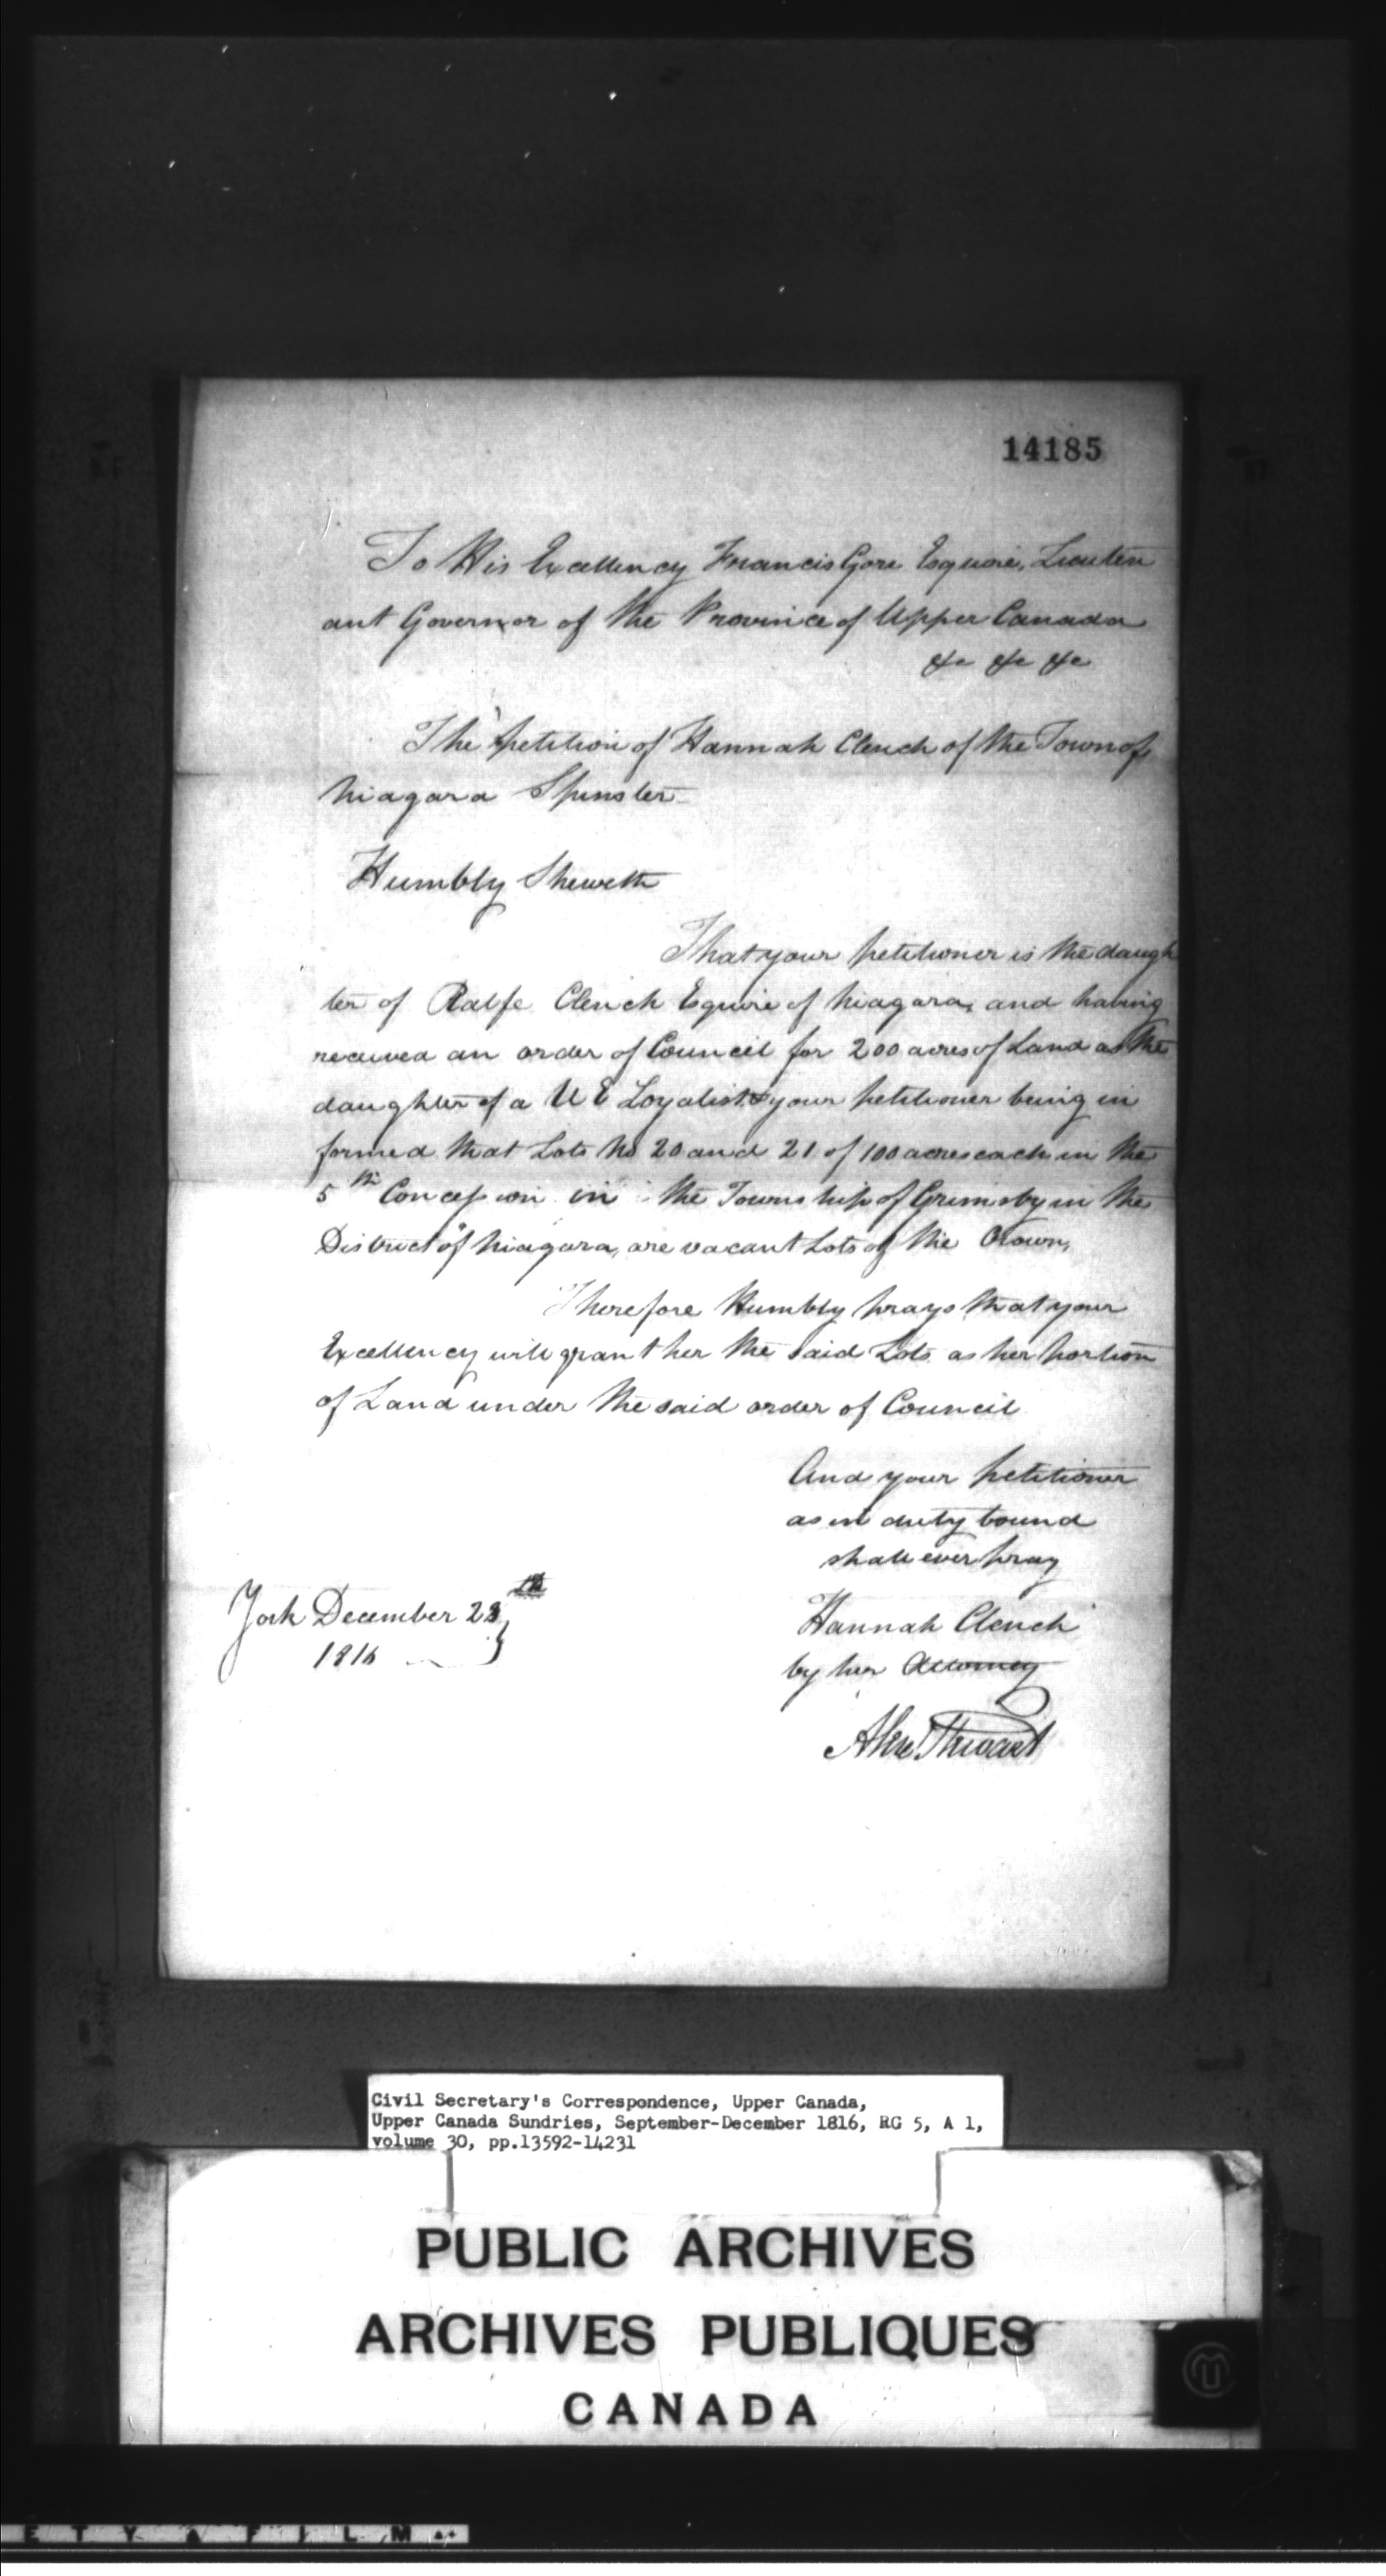 14185
To His Excellency Francis Gore Esquire, Lieuten
ant Governor of the Province of Upper Canada
&c &c &c
The petition of Hannah Clench of the Town of
Niagara Spinster
Humbly Sheweth
That your petitioner is the daugh
ter of Ralfe Clench Esquire of Niagara, and having
received an order of Council for 200 acres of Land as the
daughter of a U E Loyalist & your petitioner being in
formed that Lots No 20 and 21 of 100 acres each in the
5th Concession in the Township of Grimsby in the
District of Niagara, are vacant Lots of the Crown,
Therefore Humbly prays that your
Excellency will grant her the said Lots as her portion
of Land under the said order of Council
And your petitioner
as in duty bound
shall ever pray
York December 28
1816
Hannah Clench
by her Attorney
Alex Stewart
Civil Secretary's Correspondence, Upper Canada,
Upper Canada Sundries, September-December 1816, RG 5, A 1,
volume 30, pp.13592-14231
PUBLIC ARCHIVES
ARCHIVES PUBLIQUES
CANADA
E T Y A F I L M